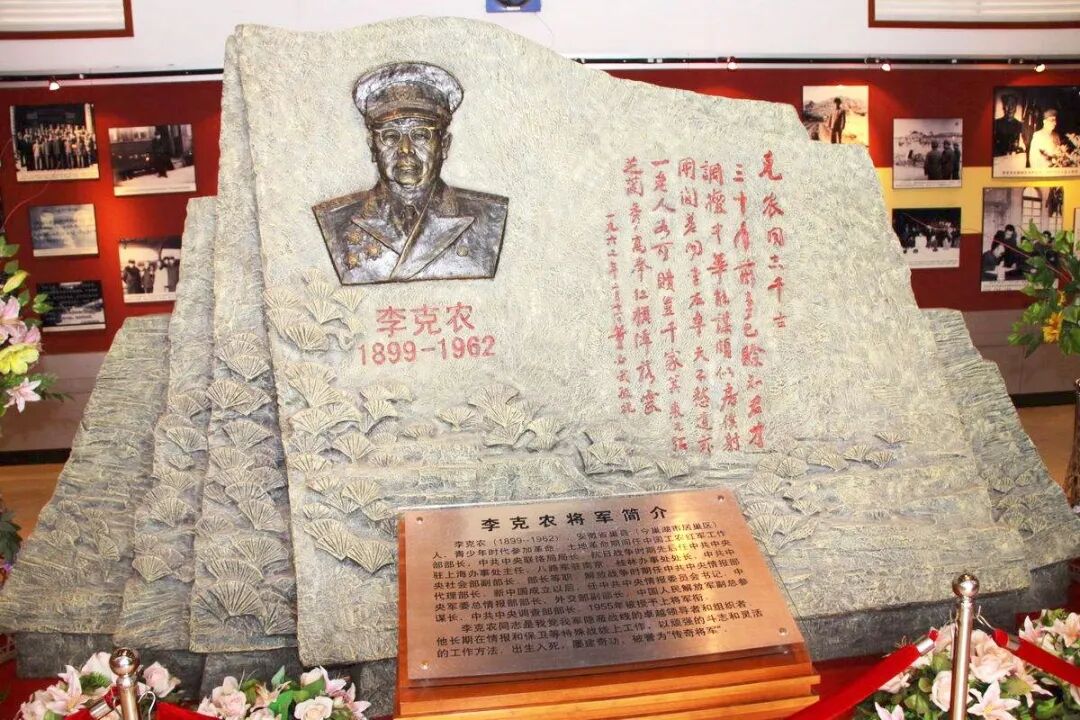 李克农
1899-1962
克农同志千古
三十年前事已赊知君才
调护中华能谋颇似房仆射
用间差同李左车天不慭遗
一老人可赎岂千家
芝兰秀
一九六二年二月董必武敬挽
李克农将军简介
李克农(1899--1962),安徽省巢县(今巢湖市居巢区)
人,青少年时代参加革命。土地革命期间任中国工农红军工作
部部长,中共中央联络局局长,抗日战争时期先后任中共中央
驻上海办事处主任,八路军驻南京、桂林办事处处长,中共中
央社会部副部长、部长等职,解放战争时期任中共中央情报部
代理部长,新中国成立以后,任中共中央情报委员会书记,中
央军委总情报部部长,外交部副部长,中国人民解放军副总参
谋长,中共中央调查部部长,1955年被授予上将军衔。
李克农同志是我党我军隐蔽战线的卓越领导者和组织者
他长期在情报和保卫等特殊战线上工作,以顽强的斗志和灵活
的工作方法,出生入死,屡建奇功,被誉为"传奇将军"。